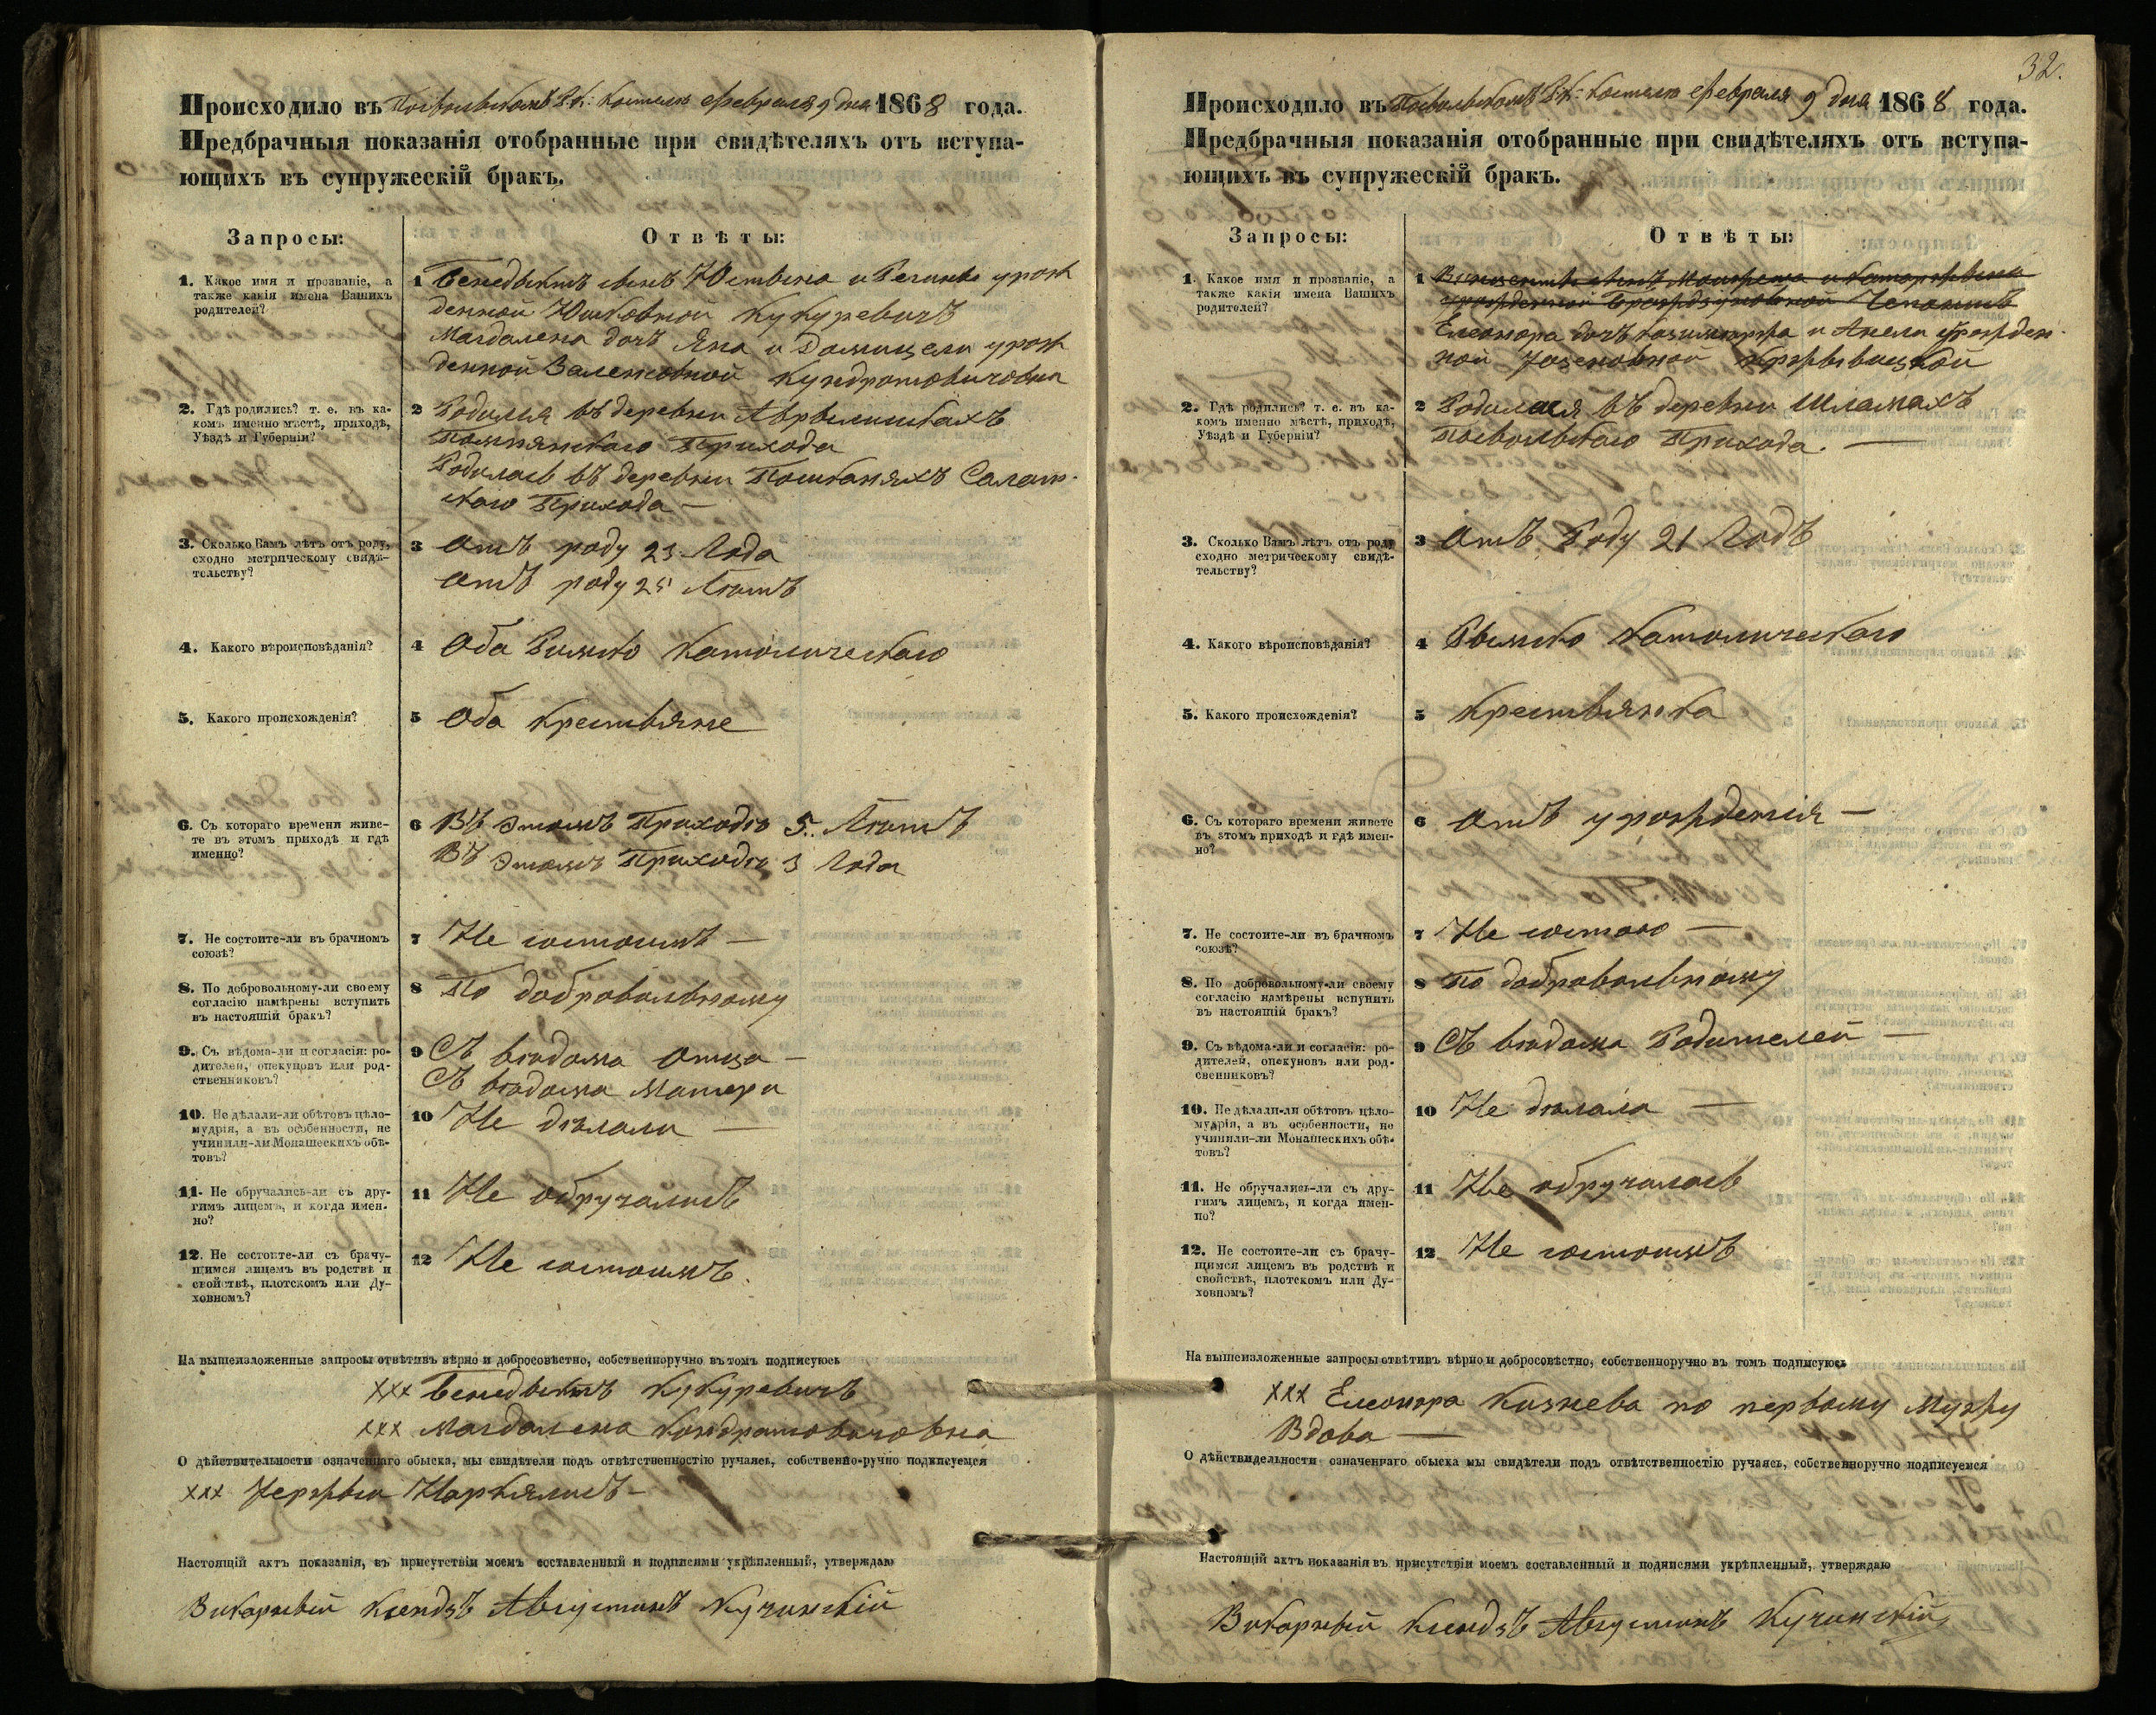 Происходило въ Посвольскомъ Р. К. Костелѣ Февраля 9 дня 1868 года.
Предбрачныя показанія отобранные при свидѣтеляхъ отъ вступа-
ющихъ въ супружескій бракъ.
Запросы:
Отвѣты:
1. Какое имя и прозваніе, а
также какія имена Вашихъ
родителей?
1 Бенедыктъ сынъ Юстына и Регины урож
денной Юшковной Кукуревичъ
Магдалена дочь Яна и Домицели урож
денной Залентовной Кундратовичовна
2. Гдѣ родились? т. е. въ ка-
комъ именно мѣстѣ, приходѣ,
Уѣздѣ и Губерніи?
2 Родился въ деревни
Прихода
Родилась въ деревни Салат-
скаго Прихода —
3. Сколько Вамъ лѣтъ отъ роду,
сходно метрическому свидѣ-
тельству?
3 Отъ роду 23 Года
Отъ роду 25 Лѣтъ
4. Какого вѣроисповѣданія?
4 Оба Римско Католическаго
5. Какого происхожденія?
5 Оба крестьяне
6. Съ котораго времени живе-
те въ этомъ приходѣ и гдѣ
именно?
6 Въ этомъ Приходѣ 5. Лѣтъ
Въ этомъ Приходѣ 3 Года
7. Не состоите-ли въ брачномъ
союзѣ?
7 Не состоимъ —
8. По добровольному-ли своему
согласію намѣрены вступить
въ настоящій бракъ?
8 По добровольному
9. Съ вѣдома-ли и согласія: ро-
дителей, опекуновъ или род-
ственниковъ?
9 Съ вѣдома Отца —
Съ вѣдома Матери
10. Не дѣлали-ли обѣтовъ цѣло-
мудрія, а въ особенности, не
учинили-ли Монашескихъ обѣ-
товъ?
10 Не дѣлали —
11. Не обручались-ли съ дру-
гимъ лицемъ, и когда имен-
но?
11 Не обручались
12. Не состоите-ли съ брачу-
щимся лицемъ въ родствѣ и
свойствѣ, плотскомъ или Ду-
ховномъ?
12 Не состоимъ.
На вышеизложенные запросы отвѣтивъ вѣрно и добросовѣстно, собственноручно въ томъ подписуюсь
ххх Бенедыктъ Кукуревичъ
ххх Магдалена Кондратовичовна
О дѣйствительности означеннаго обыска, мы свидѣтели подъ отвѣтственностію ручаясь, собственно-ручно подписуемся
ххх
Настоящій актъ показанія, въ присутствіи моемъ составленный и подписями укрѣпленный, утверждаю
Викарный Ксендзъ Августинъ Кучинскій
32.
Происходило въ Посвольскомъ Р. К. Костелѣ Февраля 9 дня 1868 года.
Предбрачныя показанія отобранные при свидѣтеляхъ отъ вступа-
ющихъ въ супружескій бракъ.
Запросы:
Отвѣты:
1. Какое имя и прозваніе, а
также какія имена Вашихъ
родителей?
1 Елеонора дочь Казимержа и Анели урожден-
ной
2. Гдѣ родились? т. е. въ ка-
комъ именно мѣстѣ, приходѣ,
Уѣздѣ и Губерніи?
2 Родилася въ деревни Шламахъ
Посвольскаго Прихода. —
3. Сколько Вамъ лѣтъ отъ роду
сходно метрическому свидѣ-
тельству?
3 Отъ Роду 21 Годъ
4. Какого вѣроисповѣданія?
4 Рымско Католическаго
5. Какого происхожденія?
5 Крестьянка
6. Съ котораго времени живете
въ этомъ приходѣ и гдѣ имен-
но?
6 Отъ урожденія —
7. Не состоите-ли въ брачномъ
союзѣ?
7 Не состою —
8. По добровольному-ли своему
согласію намѣрены вспунить
въ настоящій бракъ?
8 По добровольному
9. Съ вѣдома-ли и согласія: ро-
дителей, опекуновъ или род-
свенниковъ?
9 Съ вѣдома Родителей —
10. Не дѣлали-ли обѣтовъ цѣло-
мудрія, а въ особенности, не
учинили-ли Монашескихъ обѣ-
товъ?
10 Не дѣлала —
11. Не обручались-ли съ дру-
гимъ лицемъ, и когда имен-
но?
11 Не обручалась
12. Не состоите-ли съ брачу-
щимся лицемъ въ родствѣ и
свойствѣ, плотскомъ или Ду-
ховномъ?
12 Не состоимъ
На вышеизложенные запросы отвѣтивъ вѣрно и добросовѣстно, собственноручно въ томъ подписуюсь
ххх Елеонора Кизнева по первому Мужу
Вдова —
О дѣйствидельности означеннаго обыска мы свидѣтели подъ отвѣтственностію ручаясь, собственноручно подписуемся
Настоящій актъ показанія въ присутствіи моемъ составленный и подписями укрѣпленный, утверждаю
Викарный Ксендзъ Августинъ Кучинскій